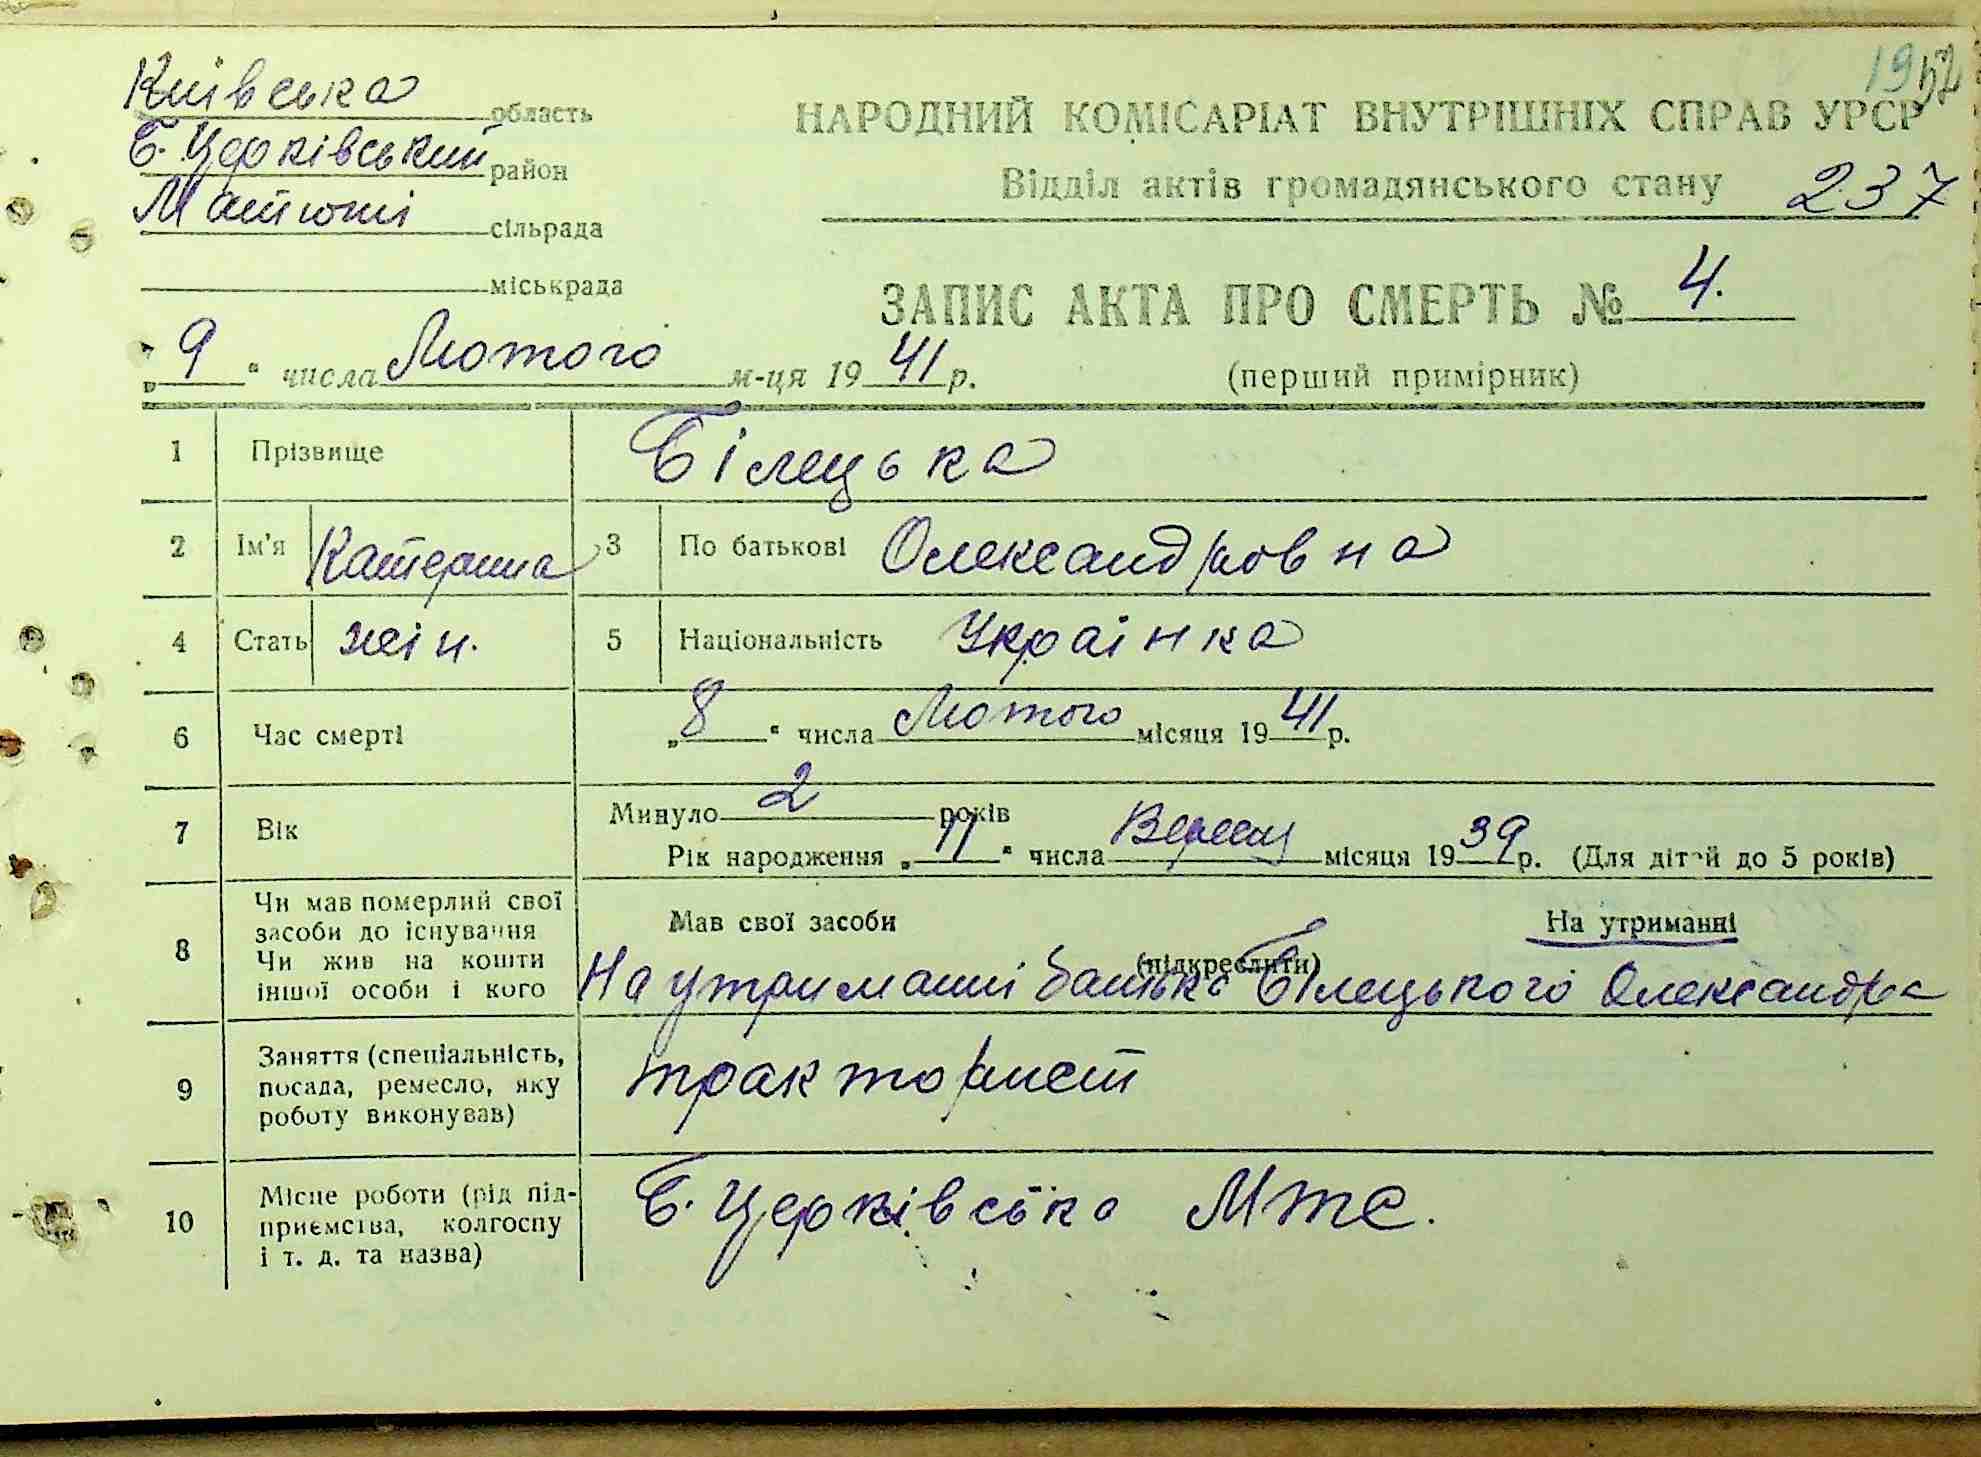 Київська область
Б. Церківський район
Матюші сільрада
міськрада
НАРОДНИЙ КОМІСАРІАТ ВНУТРІШНІХ СПРАВ УРСР
Відділ актів громадянського стану 237
ЗАПИС АКТА ПРО СМЕРТЬ № 4.
(перший примірник)
„ 9 “ числа Лютого м-ця 19 41 р.
1 Прізвище Білецька
2 Ім'я Катерина 3 По батькові Олександровна
4 Стать жін. 5 Національність Українка
6 Час смерті „ 8 “ числа Лютого місяця 19 41 р.
7 Вік Минуло 2 років
Рік народження „ 11 “ числа місяця 19 39 р. (Для дітей до 5 років)
8 Чи мав померлий свої засоби до існування
Чи жив на кошти іншої особи і кого
Мав свої засоби На утриманні
(підкреслити)
На утриманні батька Білецького Олександра
9 Заняття (спеціальність, посада, ремесло, яку роботу виконував) тракторист
10 Місце роботи (рід підприємства, колгоспу і т. д. та назва) Б. Церківська Мтс.